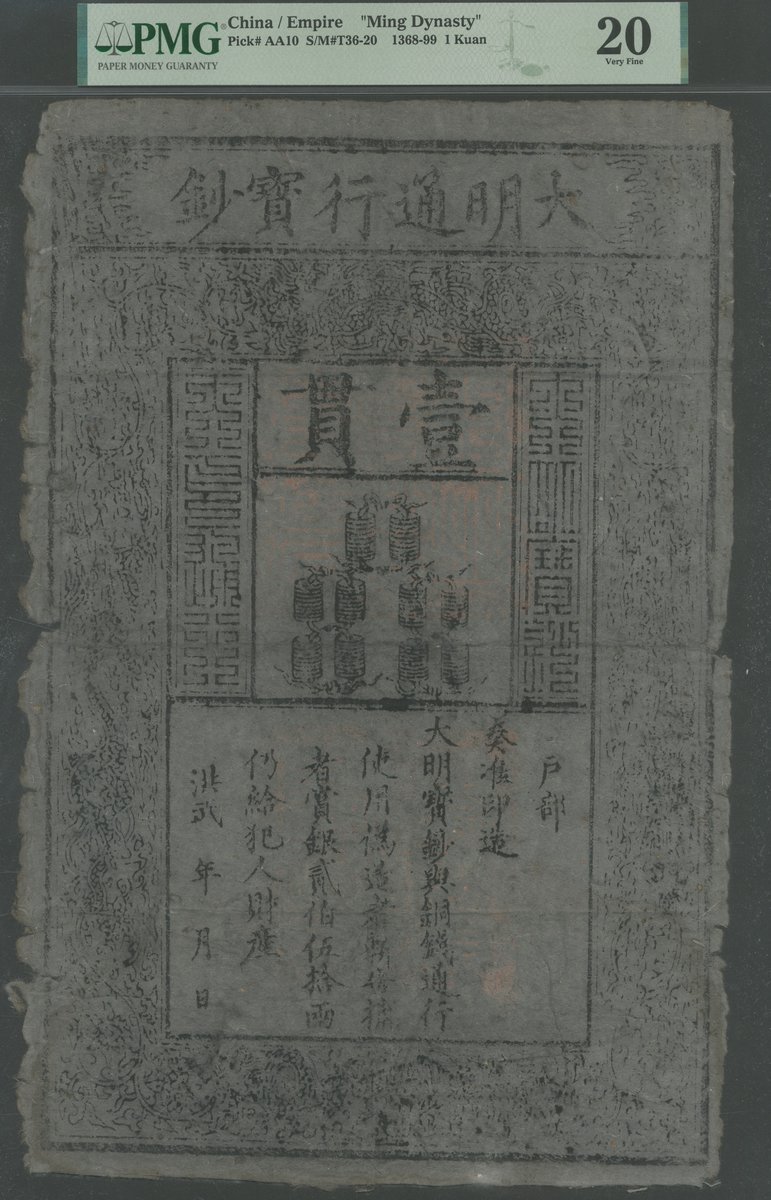 PMG®
PAPER MONEY GUARANTY
China / Empire "Ming Dynasty"
Pick# AA10 S/M#T36-20 1368-99 1 Kuan
20
Very Fine
大明通行寶鈔
壹貫
大明寶鈔
天下通行
戶部
奏准印造
大明寶鈔與銅錢通行
使用偽造者斬告捕
者賞銀貳伯伍拾兩
仍給犯人財產
洪武 年 月 日